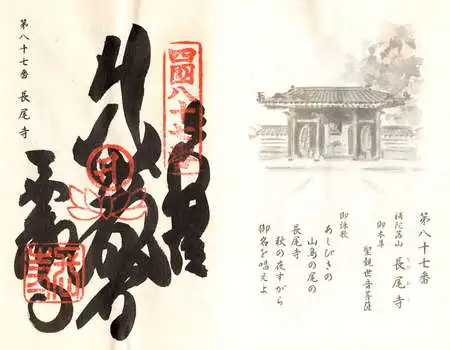 第八十七番
補陀落山 長尾寺
御本尊 聖観世音菩薩
御詠歌
あしびきの
山鳥の尾の
長尾寺
秋の夜すがら
御名を唱えよ
四國八十七番
第八十七番 長尾寺